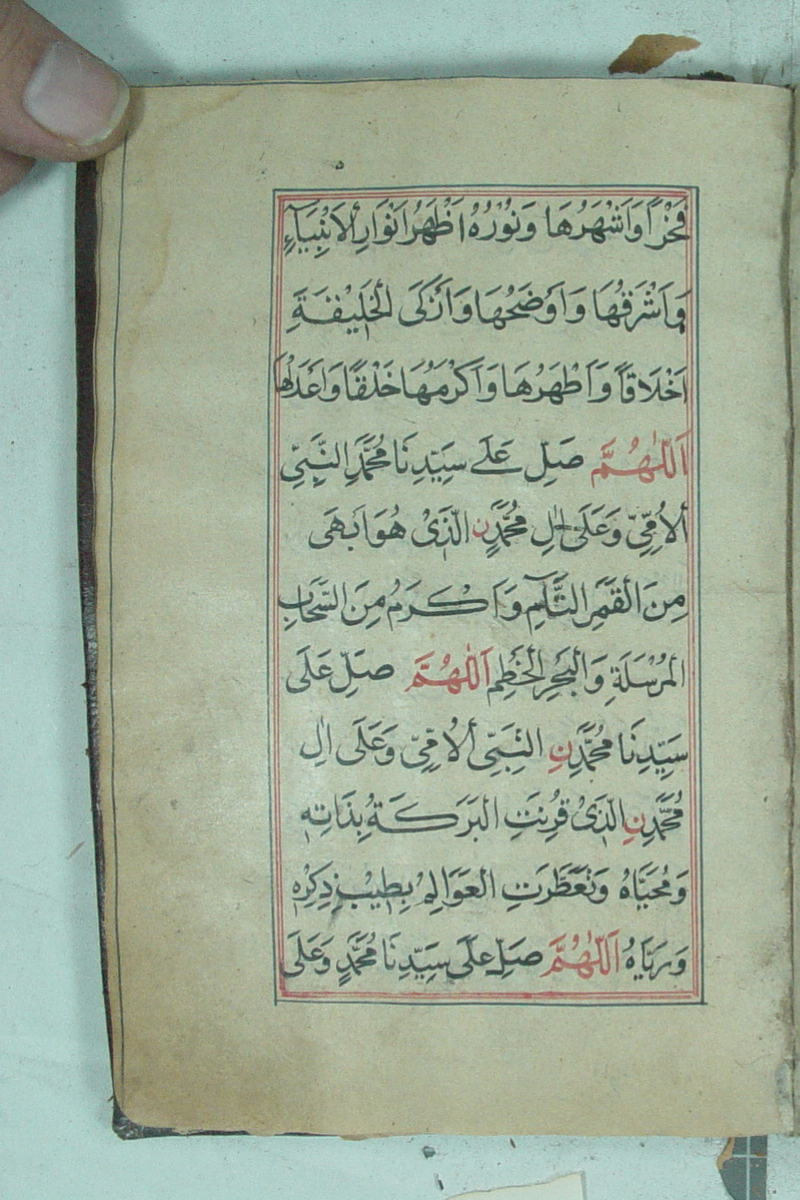 فَخْرًا وَاَشْهَرُهَا وَنُوْرُهُ اَظْهَرُ اَنْوَارِ اْلاَنْبِيَآءِ
وَاَشْرَقُهَا وَاَوْضَحُهَا وَاَزْكَى الْخَلِيْقَةِ
اَخْلَاقًا وَاَطْهَرُهَا وَاَكْرَمُهَا خَلْقًا وَاَعْدَلُهَا
اَللّٰهُمَّ صَلِّ عَلٰى سَيِّدِنَا مُحَمَّدِ النَّبِيِّ
اْلاُمِّيِّ وَعَلَى اٰلِ مُحَمَّدٍنِ الَّذِىْ هُوَ اَبْهَى
مِنَ الْقَمَرِ التَّآمِّ وَاَكْرَمُ مِنَ السَّحَابِ
الْمُرْسَلَةِ وَالْبَحْرِ الْخَطْمِ اَللّٰهُمَّ صَلِّ عَلَى
سَيِّدِنَا مُحَمَّدٍنِ النَّبِيِّ اْلاُمِّيِّ وَعَلَى اٰلِ
مُحَمَّدٍنِ الَّذِىْ قُرِنَتِ الْبَرَكَةُ بِذَاتِهٖ
وَمُحَيَّاهُ وَتَعَطَّرَتِ الْعَوَالِمُ بِطِيْبِ ذِكْرِهٖ
وَرَيَّاهُ اَللّٰهُمَّ صَلِّ عَلَى سَيِّدِنَا مُحَمَّدٍ وَعَلَى